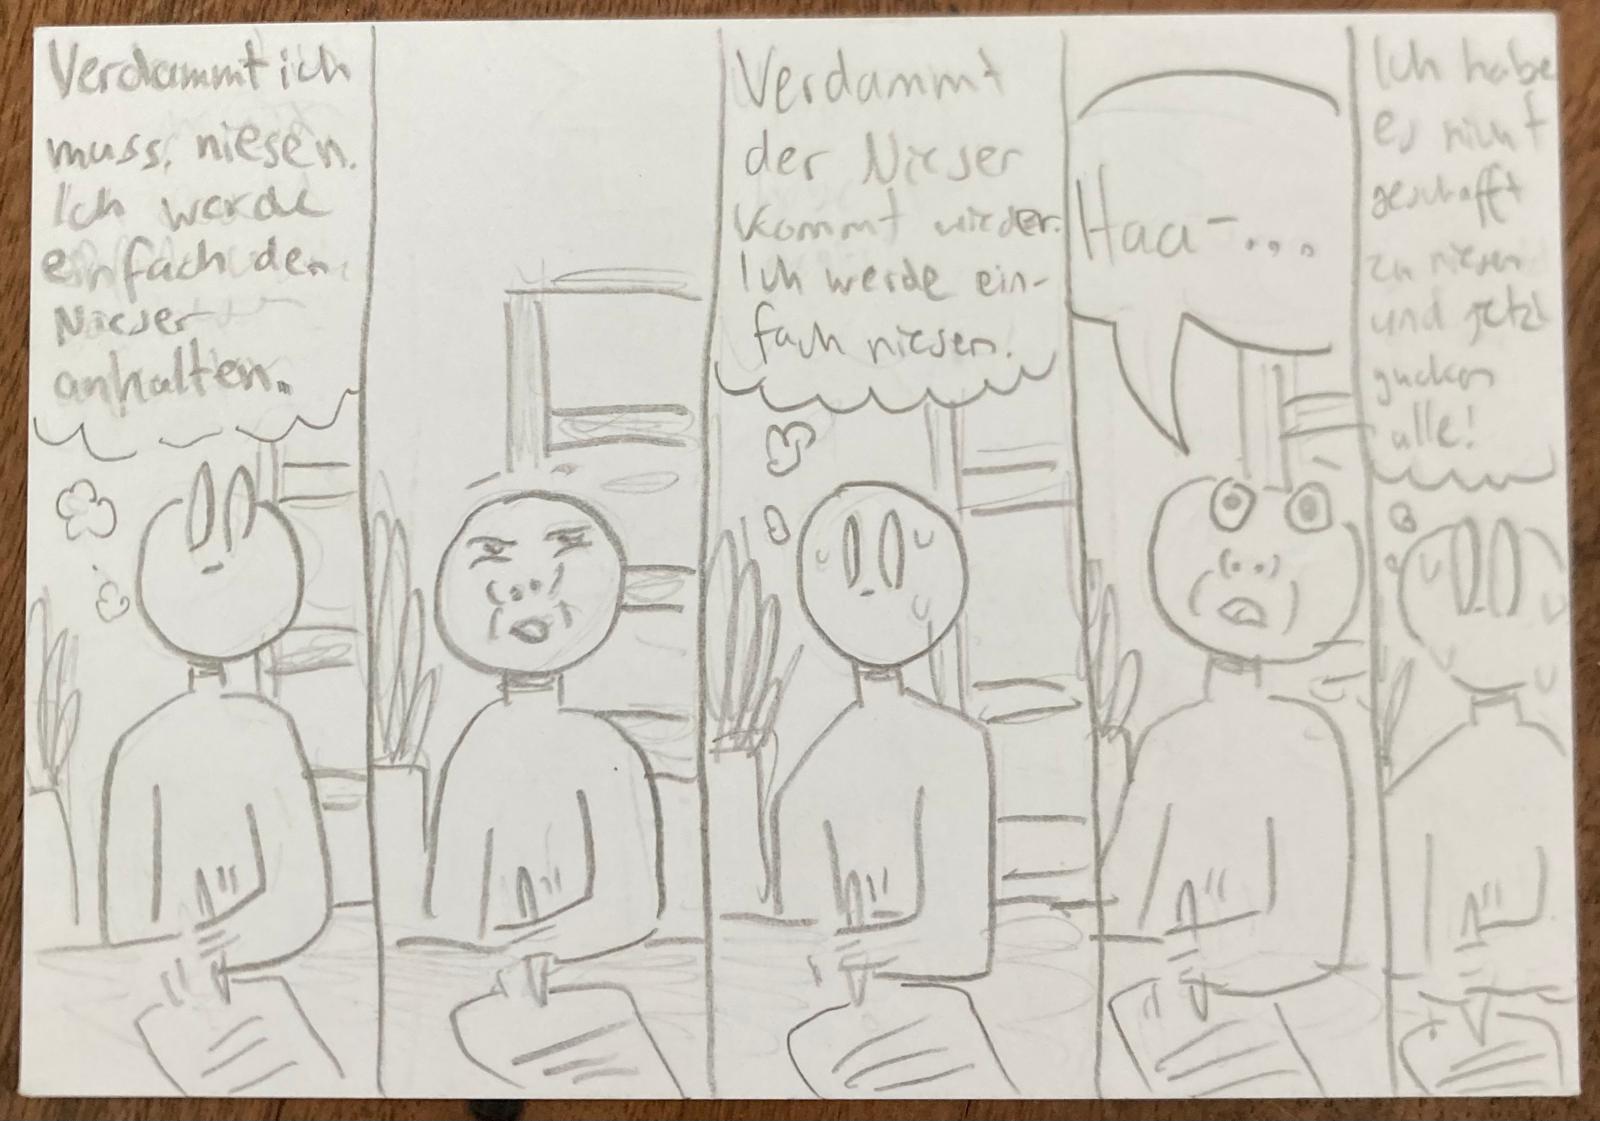 Verdammt ich
muss niesen.
Ich werde
einfach den
Nieser
anhalten.
Verdammt
der Nieser
kommt wieder.
Ich werde ein-
fach niesen.
Haa-...
Ich habe
es nicht
geschafft
zu niesen
und jetzt
gucken
alle!